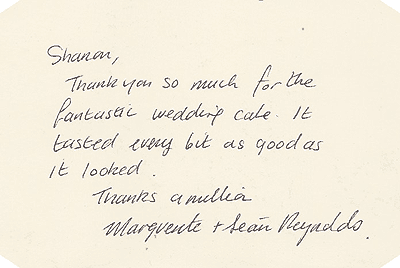 Sharon,
Thank you so much for the
fantastic wedding cake. It
tasted every bit as good as
it looked.
Thanks a million
Marguerite + Seán Reynolds.